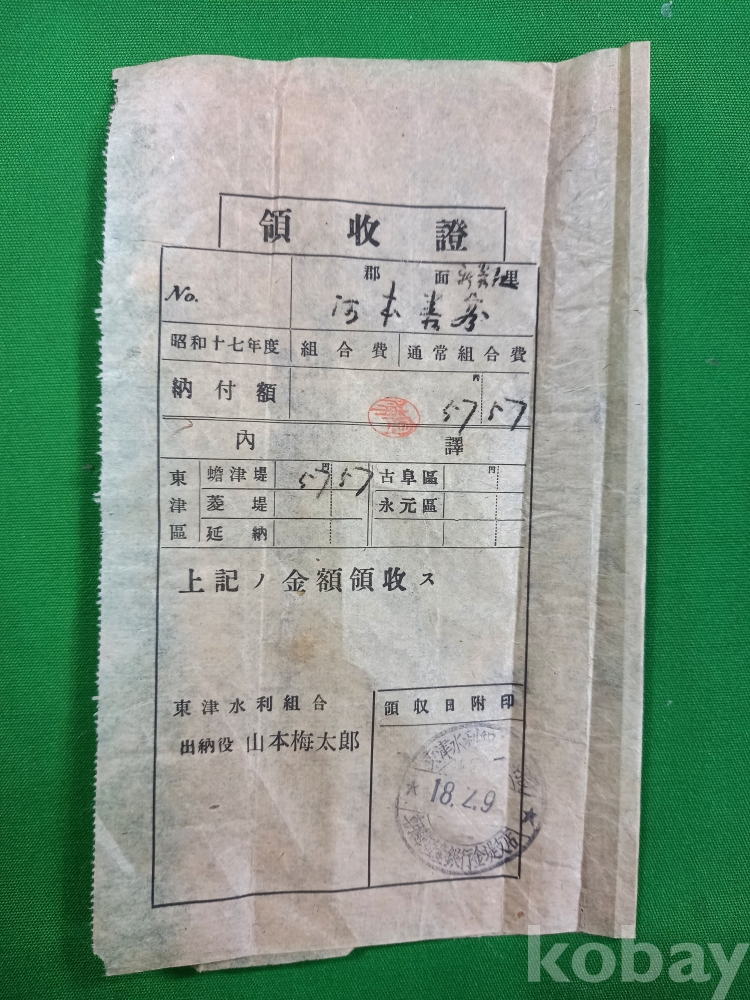 領收證
No.
郡 面 里
河本
昭和十七年度 組合費 通常組合費
納付額 円 57 57
內譯
東津區 蟾津堤 円 57 57 古阜區 円
菱堤 永元區
延納
上記ノ金額領收ス
東津水利組合
出納役 山本梅太郎
領収日附印
東津水利組合
18.2.9
銀行金堤支店
kobay